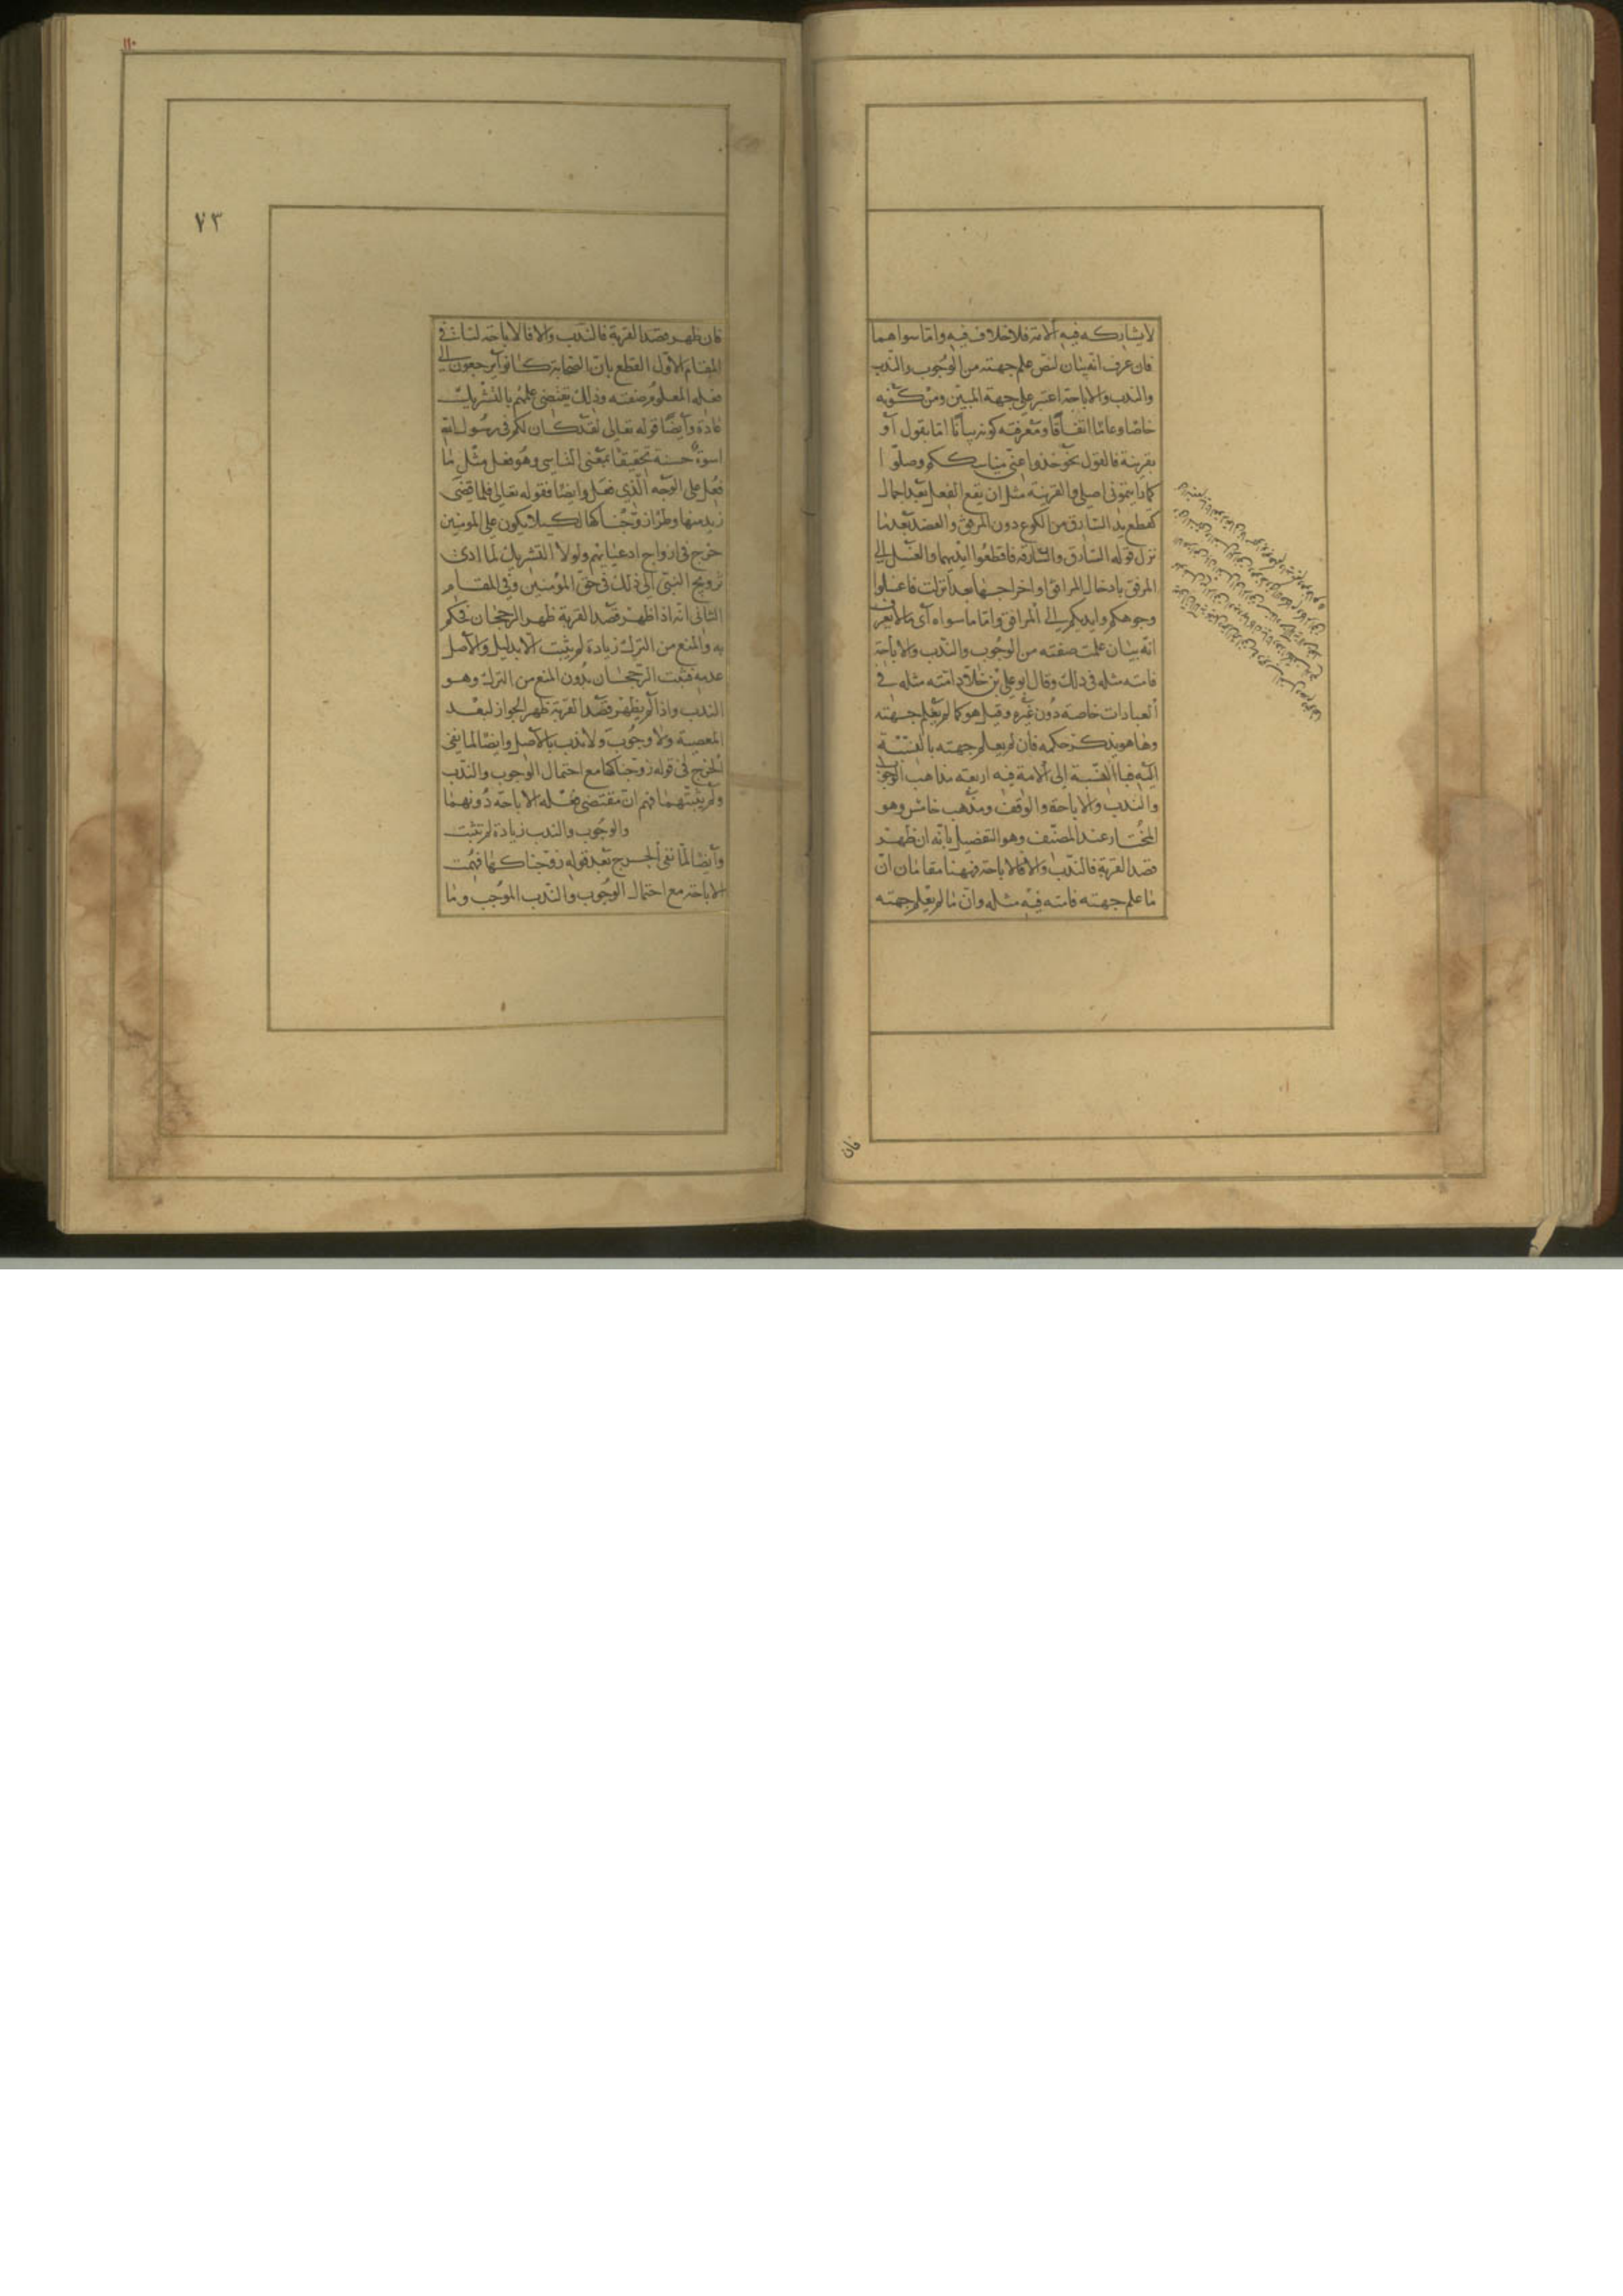 لا يشاركه فيه الامة فلا خلاف فيه واما سواهما
فان عرف انه بيان لنص علم جهته من الوجوب والندب
والندب والاباحة اعتبر على جهة المبين ومن كونه
خاصا وعاما اتفاقا ومعرفته كونه بيانا اما بقول او
بقرينة فالقول نحو خذوا عني مناسككم وصلوا
كما رايتموني اصلي والقرينة مثل ان يقع الفعل بعد اجمال
كقطع يد السارق من الكوع دون المرفق والعضد بعد ما
نزل قوله السارق والسارقة فاقطعوا ايديهما والغسل الى
المرفق بادخال المرافق او اخراجها بعد انزلت فاغسلوا
وجوهكم وايديكم الى المرافق واما ما سواه اى ما لا يعرف
انه بيان علمت صفته من الوجوب والندب والاباحة
فامته مثله فى ذلك وقال ابو على بن خلاد امته مثله فى
العبادات خاصة دون غيره وقيل هو كما لم يعلم جهته
وها هو يذكر حكمه فان لم يعلم جهته بالنسبة
اليه فبالنسبة الى الامة فيه اربعة مذاهب الوجوب
والندب والاباحة والوقف ومذهب خامس وهو
المختار عند المصنف وهو التفصيل بانه ان ظهر
قصد القربة فالندب والا فالاباحة فههنا مقامان ان
ما علم جهته فامته فيه مثله وان ما لم يعلم جهته
فان
١١٠
٧٣
فان ظهر قصد القربة فالندب والا فالاباحة لنا فى
المقام الاول القطع بان الصحابة كانوا يرجعون الى
فعله المعلوم صفته وذلك يقتضى علمهم بالتشريك
عادة وايضا قوله تعالى لقد كان لكم فى رسول الله
اسوة حسنة تحقيقا بمعنى التاسى وهو فعل مثل ما
فعل على الوجه الذي فعل وايضا فقوله تعالى فلما قضى
زيد منها وطرا زوجناكها لكيلا يكون على المومنين
حرج فى ازواج ادعيائهم ولولا التشريك لما ادى
تزويج النبى الى ذلك فى حق المؤمنين وفى المقام
الثانى انه اذا ظهر قصد القربة ظهر الرجحان فحكم
به والمنع من الترك زيادة لم يثبت الا بدليل والاصل
عدمه فثبت الرجحان بدون المنع من الترك وهو
الندب واذا لم يظهر قصد القربة ظهر الجواز لبعد
المعصية ولا وجوب ولا ندب بالاصل وايضا لما نفى
الحرج فى قوله زوجناكها مع احتمال الوجوب والندب
ولم يثبتهما فهم ان مقتضى فعله الاباحة دونهما
والوجوب والندب زيادة لم تثبت
وايضا لما نفى الحرج بعد قوله زوجناكها فهمت
الاباحة مع احتمال الوجوب والندب الموجب وما